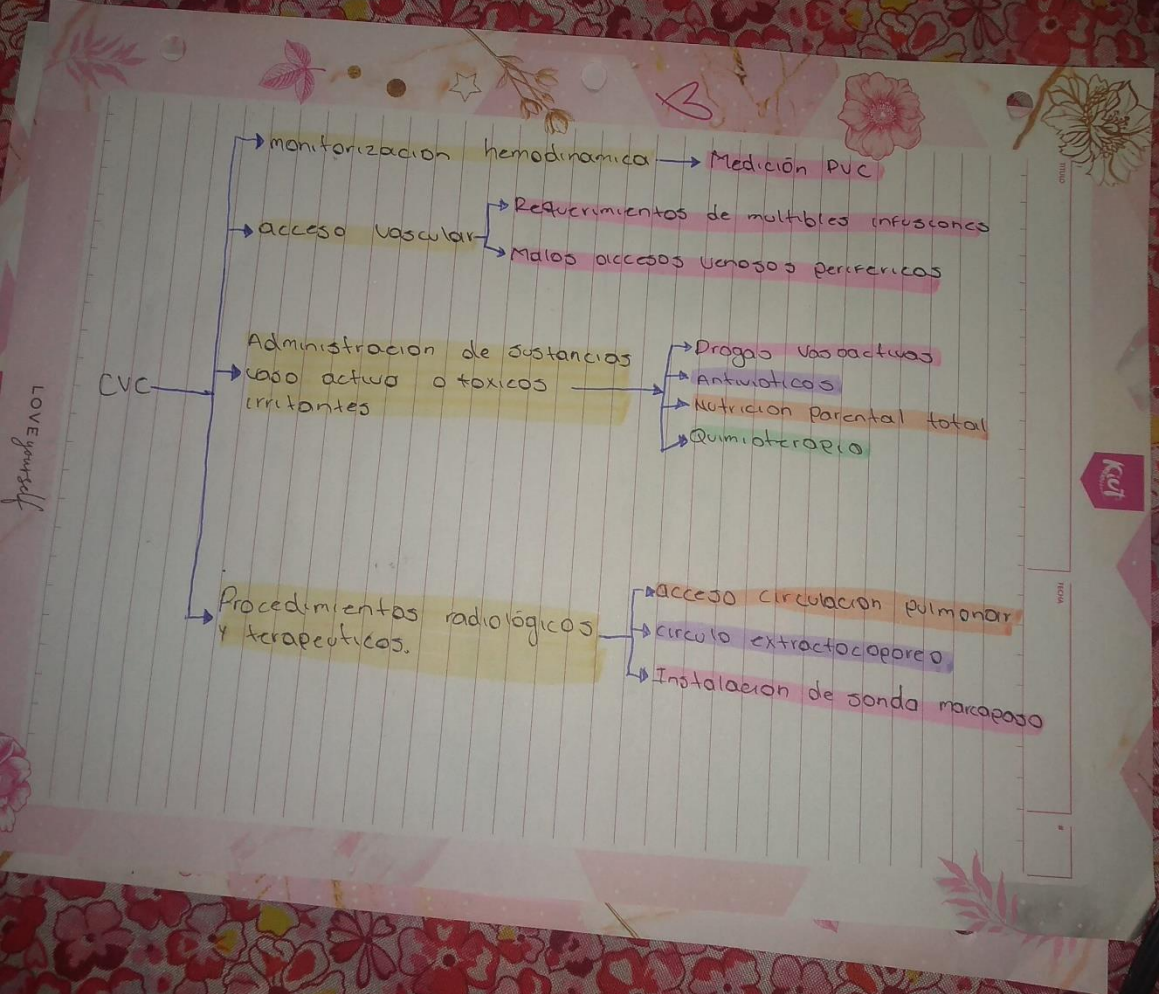 monitorizacion hemodinamica
Medición PVC
acceso vascular
Requerimientos de multibles infusiones
Malos accesos venosos perifericas
CVC
Administracion de sustancias
vaso activo o toxicos
irritantes
Drogas vasoactivas
Antivioticos
Nutricion parental total
Quimioterapia
Procedimientos radiológicos
y terapeuticos.
acceso circulacion pulmonar
circulo extractocoporeo
Instalacion de sonda marcapaso
LOVE yourself
Kiut
TITULO
FECHA